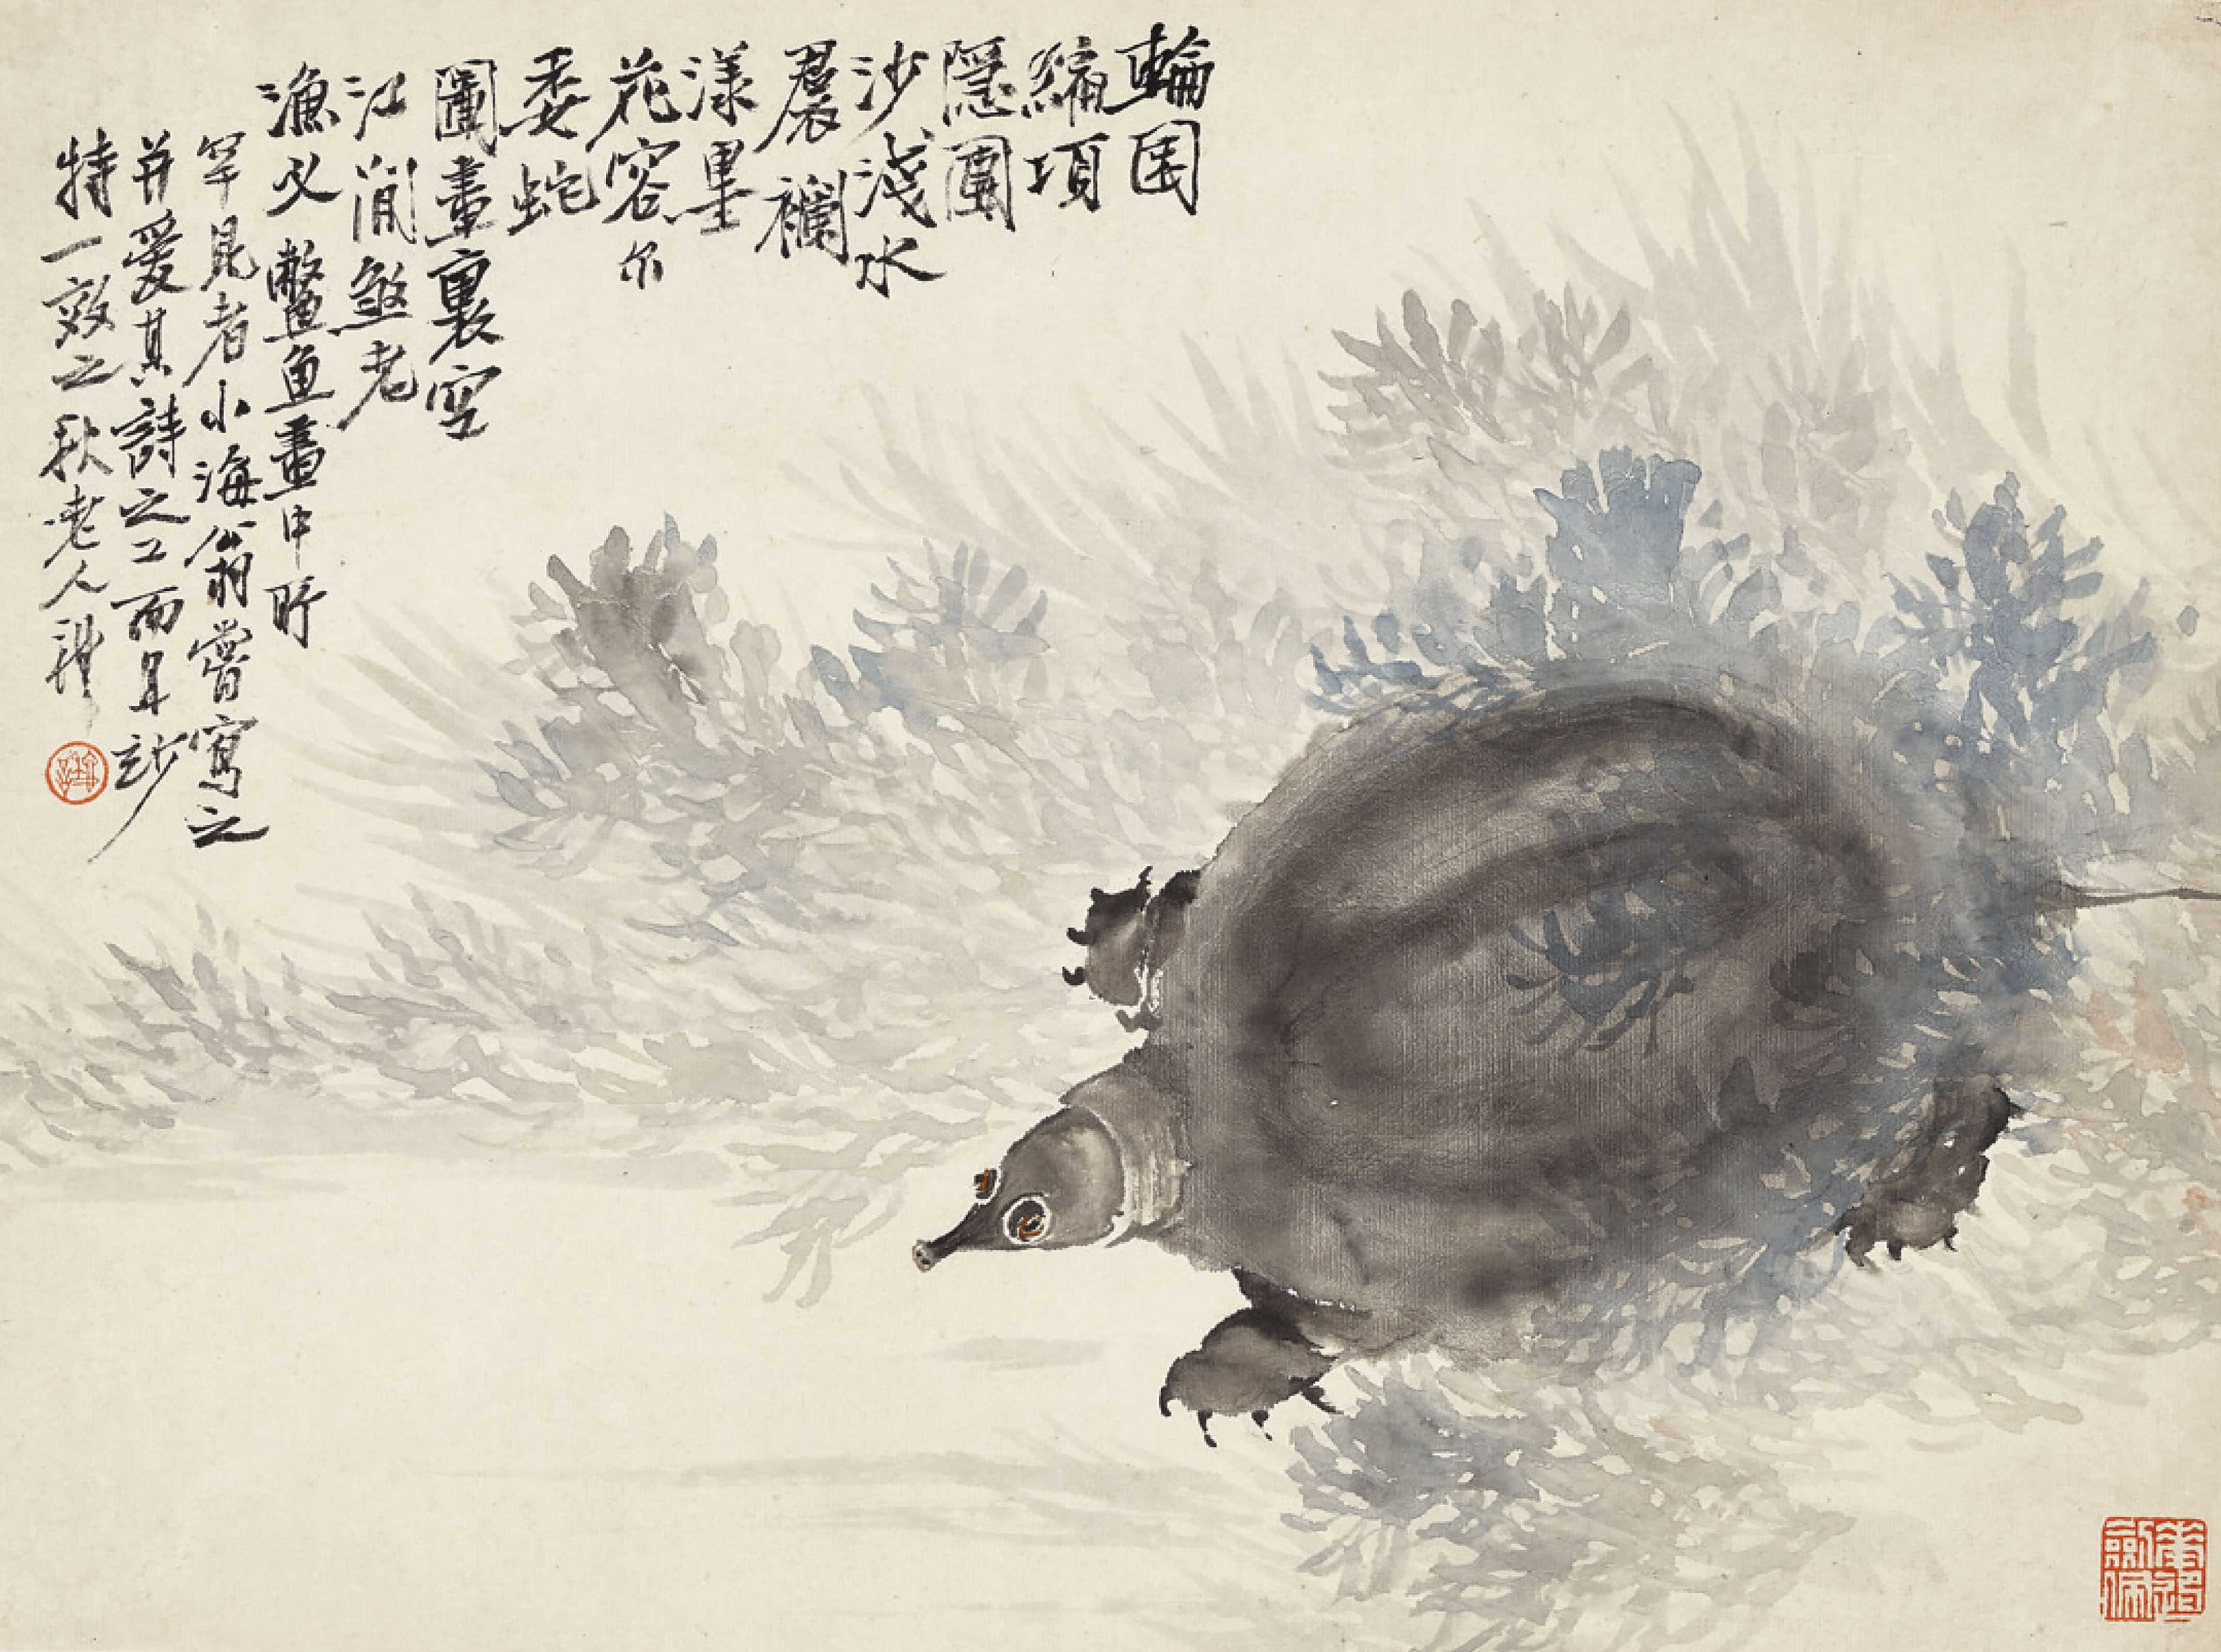 輪囷
縮項
隱團
沙淺水
裠襴
漾墨
花容尔
委蛇
圖畫裏空
江閒煞老
漁叉 鱉魚畫中所
罕見者小海翁嘗寫之
并愛其詩之工而且妙
特一效之秋老人